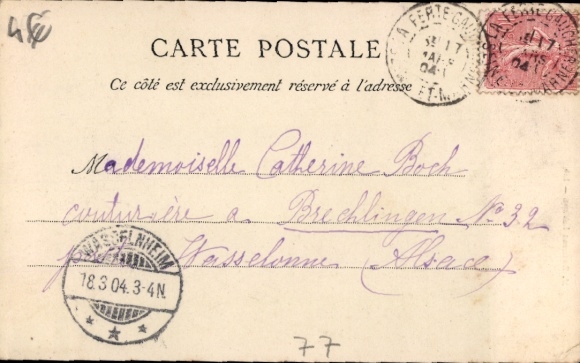 CARTE POSTALE
Ce côté est exclusivement réservé à l'adresse
LA FERTE GAUCHER
17
04
SEINE ET MARNE
Mademoiselle Catherine Boch
couturière a Brechlingen N° 32
Wasselonne (Alsace)
WASSELNHEIM
18.3.04.3-4N.
77